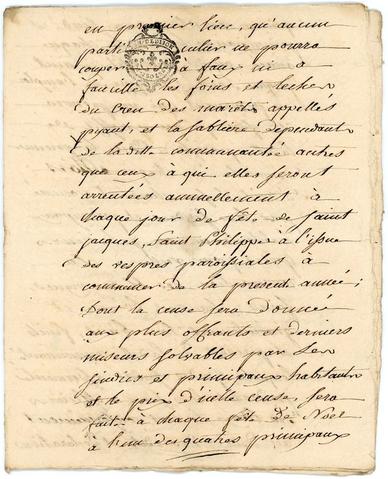 en premier lieu, qu'aucun
particulier ne pourra
couper à faux ni à
faucille les foins et lechez
du Creu des marêts appellés
piquant, et la sablière dependant
de la ditte communautée autres
que ceux à qui elles seront
arrentées annuellement à
chaque jour de fête de saint
jacques, Saint Philippe à l'issue
des vespres paroissiales à
commencer de la presente année;
Dont la cense sera donnée
aux plus offrants et derniers
miseurs solvables par Les
sindics et principaux habitants
et le prix d'icelle cense, sera
faite à chaque fête de Noel
à l'un des quatres principaux